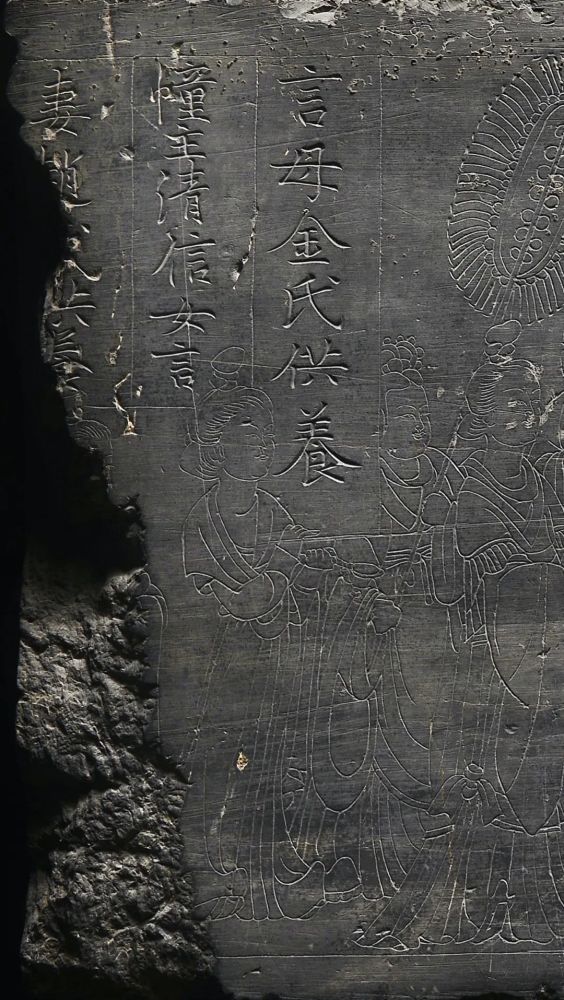 言母金氏供養
幢主清信女言
妻趙